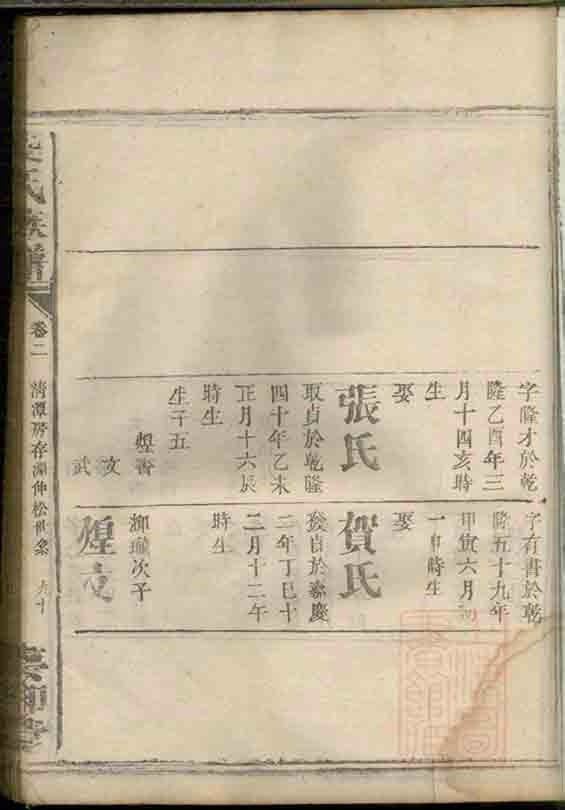 字隆才於乾
隆乙酉年三
月十四亥時
生
娶
張氏
取貞於乾隆
四十年乙未
正月十六辰
時生
生子五
煋書
文
武
字有書於乾
隆五十九年
甲寅六月初
一申時生
娶
賀氏
發貞於嘉慶
二年丁巳十
二月十二午
時生
煌文
柳璇次子
氏族譜
卷二
清潭房存淵仲松世系
六十